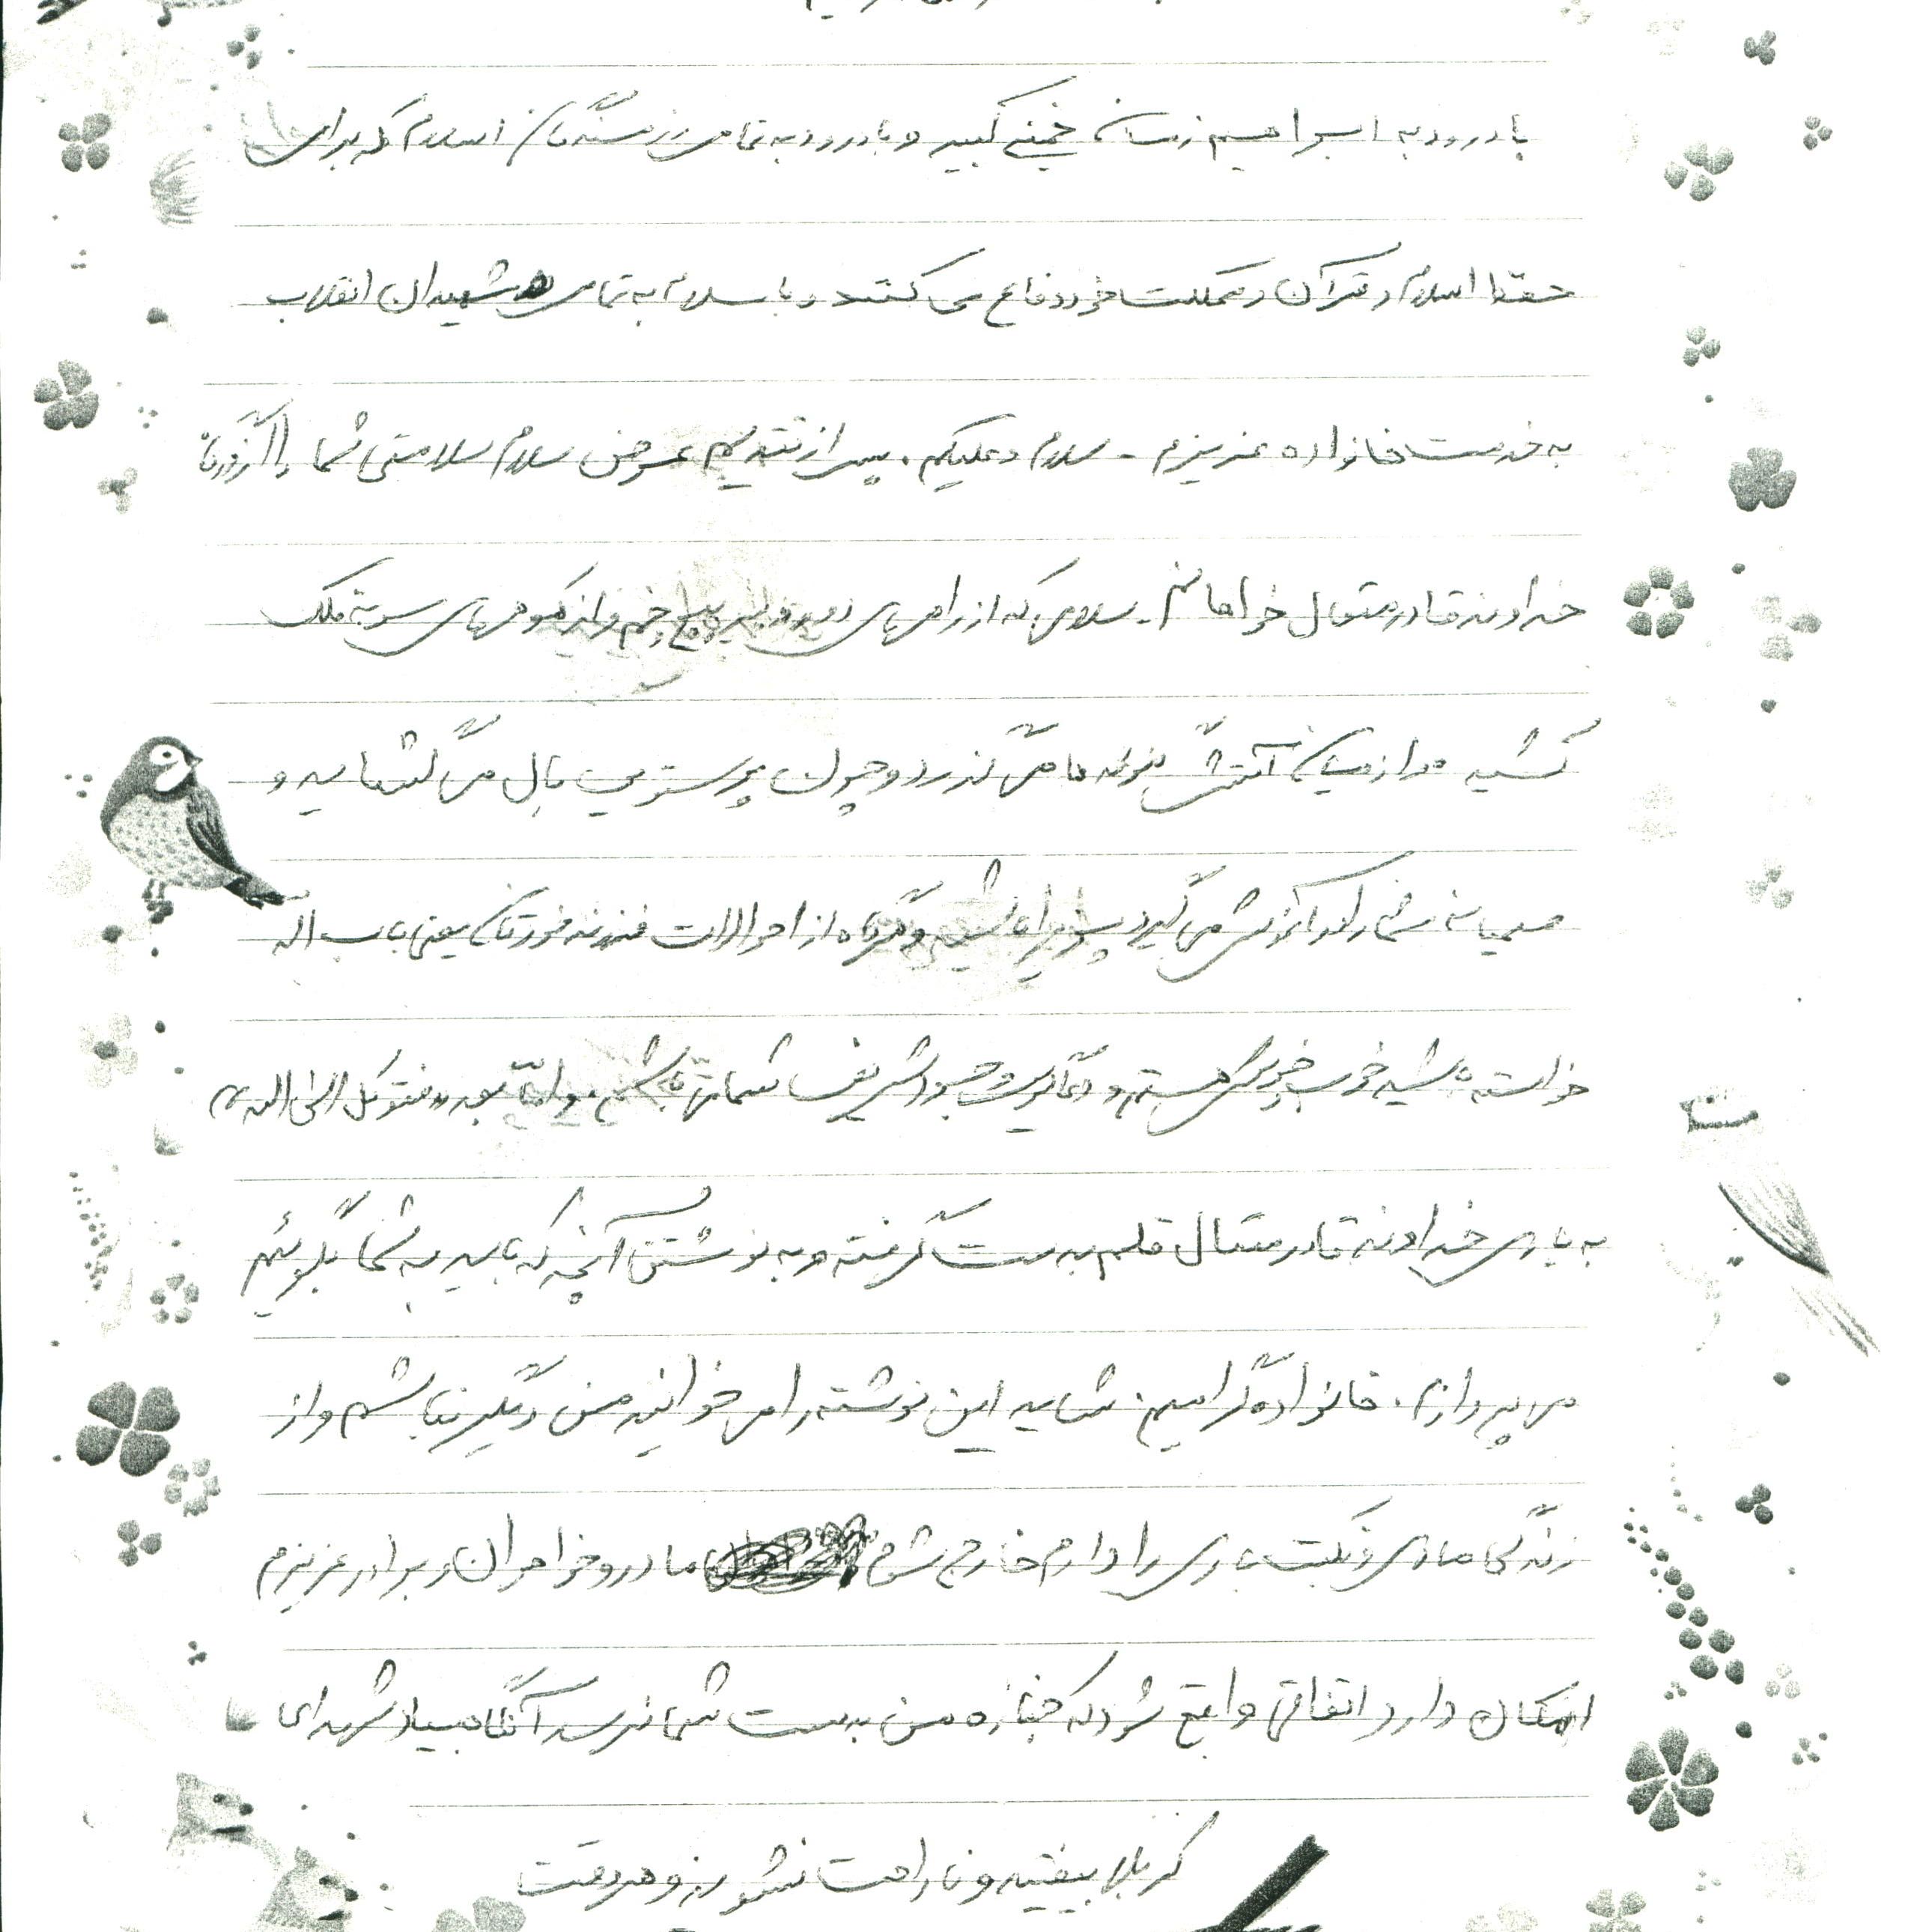 با درود به ابراهیم زمان خمینی کبیر و با درود به تمامی رزمندگان اسلام که برای
حفظ اسلام و قرآن و مملکت خود دفاع می کنند و با سلام به تمامی شهیدان انقلاب
به خدمت خانواده عزیزم - سلام و علیکم. پس از تقدیم عرض سلام سلامتی شما را از درگاه
خداوند قادر متعال خواهانم - سلامی که از راههای دور و پر پیچ و خم و از کوههای سر به فلک
کشیده و از میان آتش گلوله ها می گذرد و چون پرستویی بال می گشاید و
صمیمانه شما را در آغوش می گیرد و اگر از احوالات فرزند خودتان یعنی باب اله
خواسته باشید خوب خوب هستم و دعاگوی وجود شریف شما می باشم. و اما بعد با توکل الی الله
به یاری خداوند قادر متعال قلم بدست گرفته و به نوشتن آنچه که باید به شما بگویم
می پردازم. خانواده گرامیم: شاید این نوشته را می خوانید من دیگر نباشم و از
زندگی مادی و نکبت باری را دارم خارج شوم مادر و خواهران و برادر عزیزم
امکان دارد اتفاقی واقع شود که جنازه من بدست شما نرسد آنگاه بیاد شهدای
کربلا بیفتید و ناراحت نشوید و هر وقت